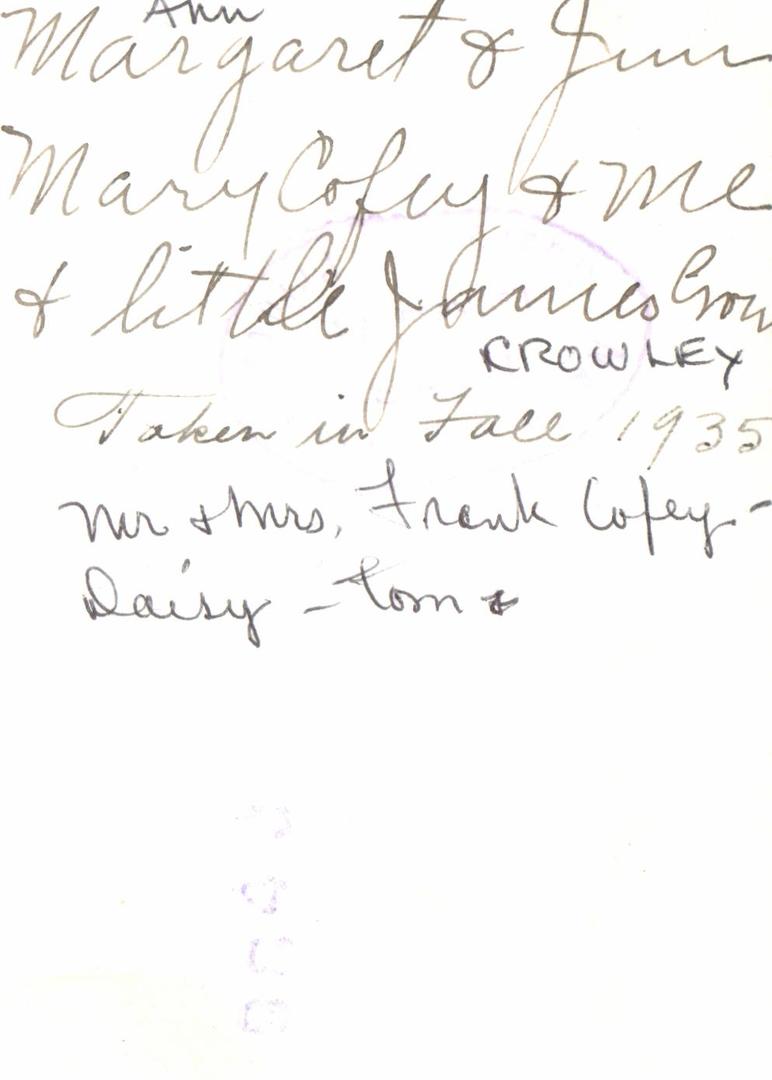 Ann
Margaret & Jim
Mary Cofey & me
& little James Crow
CROWLEY
Taken in Fall 1935
Mr & Mrs. Frank Cofey -
Daisy - Tom &